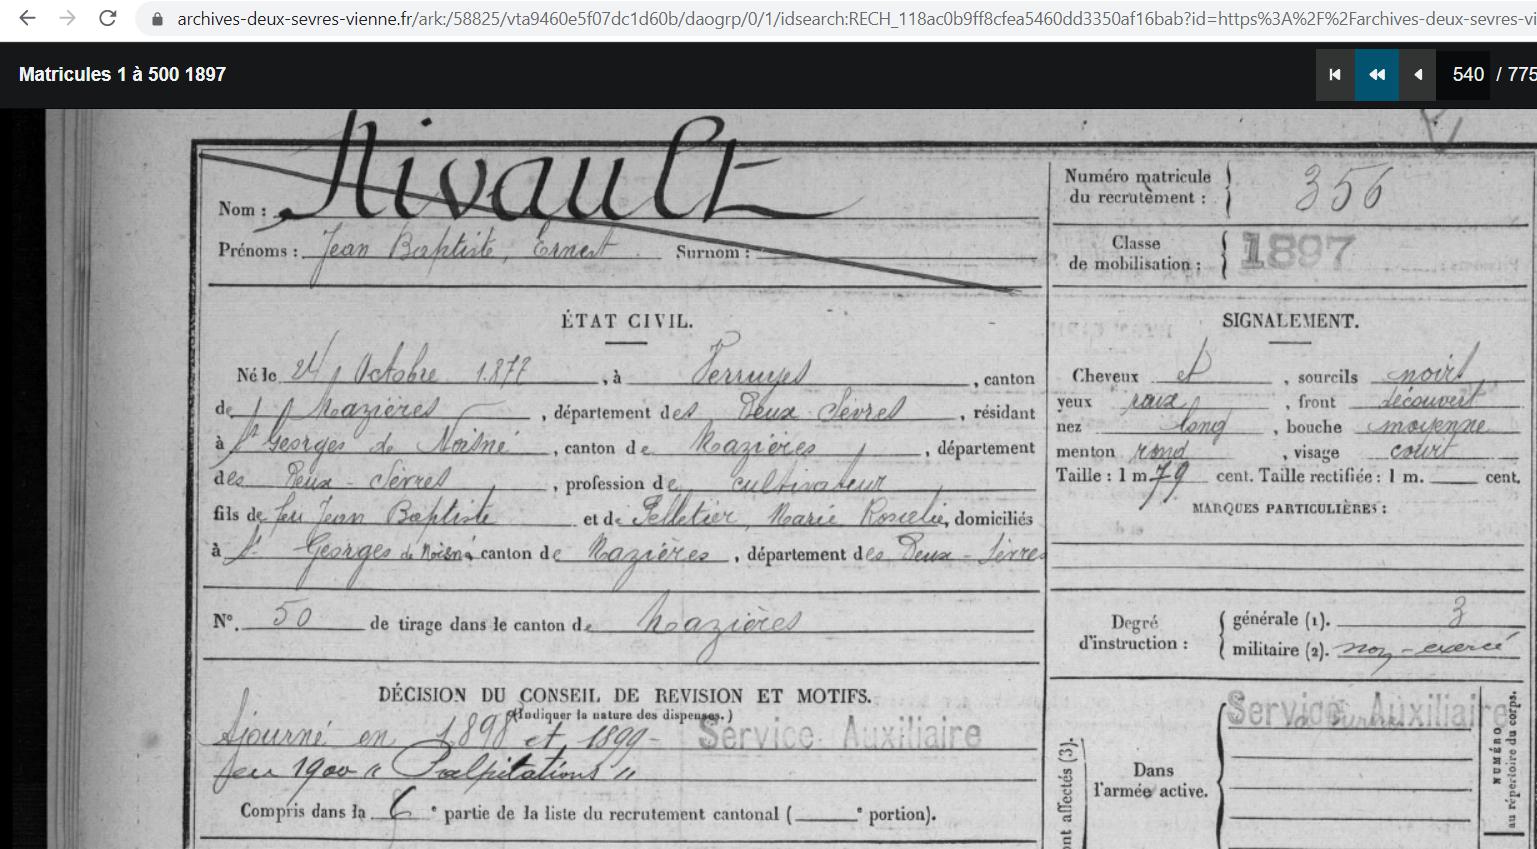 archives-deux-sevres-vienne.fr/ark:/58825/vta9460e5f07dc1d60b/daogrp/0/1/idsearch:RECH_118ac0b9ff8cfea5460dd3350af16bab?id=https%3A%2F%2Farchives-deux-sevres-vi
Matricules 1 à 500 1897
540 / 775
Nom : Nivault
Prénoms : Jean Baptiste, Ernest Surnom :
Numéro matricule
du recrutement : 356
Classe
de mobilisation : 1897
ÉTAT CIVIL.
Né le 24 Octobre 1877, à Verruyes, canton
de Mazières, département des Deux Sèvres, résidant
à St Georges de Noisné, canton de Mazières, département
des Deux-Sèvres, profession de cultivateur
fils de feu Jean Baptiste et de Pelletier, Marie Roselie, domiciliés
à St Georges de Noisné canton de Mazières, département des Deux-Sèvres
N°. 50 de tirage dans le canton de Mazières
SIGNALEMENT.
Cheveux et, sourcils noirs
yeux roux, front découvert
nez long, bouche moyenne
menton rond, visage court
Taille : 1 m 79 cent. Taille rectifiée : 1 m. cent.
MARQUES PARTICULIÈRES :
Degré
d'instruction :
générale (1). 3
militaire (2). non-exercé
DÉCISION DU CONSEIL DE REVISION ET MOTIFS.
(Indiquer la nature des dispenses.)
Ajourné en 1898 et 1899- Service Auxiliaire
en 1900 "Palpitations"
Compris dans la 6e partie de la liste du recrutement cantonal ( e portion).
Service Auxiliaire
Dans
l'armée active.
nt affectés (3).
NUMÉRO
au répertoire du corps.